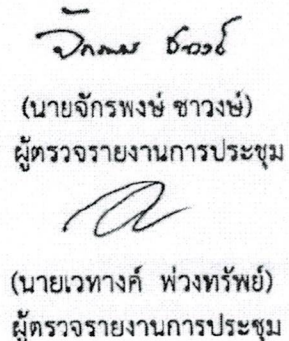 จักรพงษ์ ชาวงษ์
(นายจักรพงษ์ ชาวงษ์)
ผู้ตรวจรายงานการประชุม
(นายเวทางค์ พ่วงทรัพย์)
ผู้ตรวจรายงานการประชุม